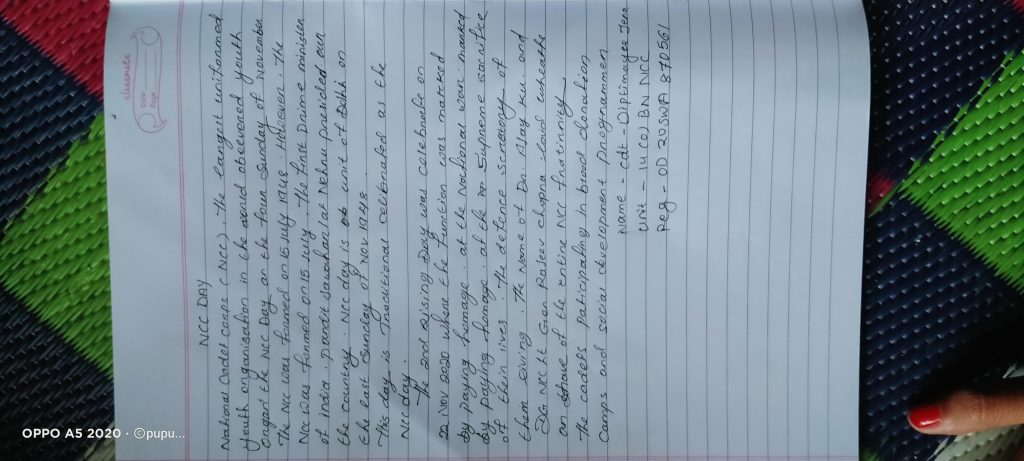 classmate
Date
Page
NCC DAY
National Cadet Corps (NCC). The largest uniformed
youth organisation in the world observed youth
the NCC Day on the four Sunday of November
The NCC was founed on 15 July 1948. However. the
NCC was formed on 15 July. The first prime minister
of india. pandit Jawaharlal Nehru presided over
the country. NCC day is unit of Delhi on
the last Sunday of Nov 1948.
This day is Traditional celibrated as the
NCC day.
The 2nd Rising Day was celebrate on
22 Nov 2020 where the function was marked
by paying homage. at the National war marked
by paying homage. at the Supreme sacrifice
of their lives. The defence secratary of
them giving. the name of Dr. Ajay ku. and
DG NCC Lt Gen Rajeev chopra laid wreaths
on behalf of the entire NCC fratinniy
the cadets participating in blood donation
Camps and social development programmer
Name - cdt - Diptimayee Jena
Unit - 14 (O) BN NCC
Reg - OD 20SWA 870561
OPPO A5 2020 · ©pupu...